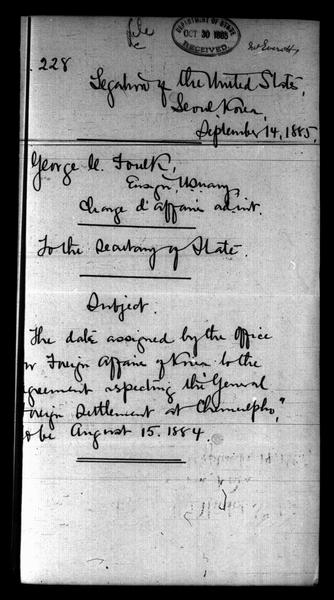 file
DEPARTMENT OF STATE
OCT 30 1885
RECEIVED
. 228
Legation of the United States,
Seoul, Korea,
September 14, 1885.
George C. Foulk,
Ensign, U.S. Navy,
Chargé d'Affaires ad int.
To the Secretary of State.
Subject.
The date assigned by the Office
or Foreign Affairs of Korea to the
greement respecting the "General
oreign Settlement at Chemulpho,"
o be August 15. 1884.